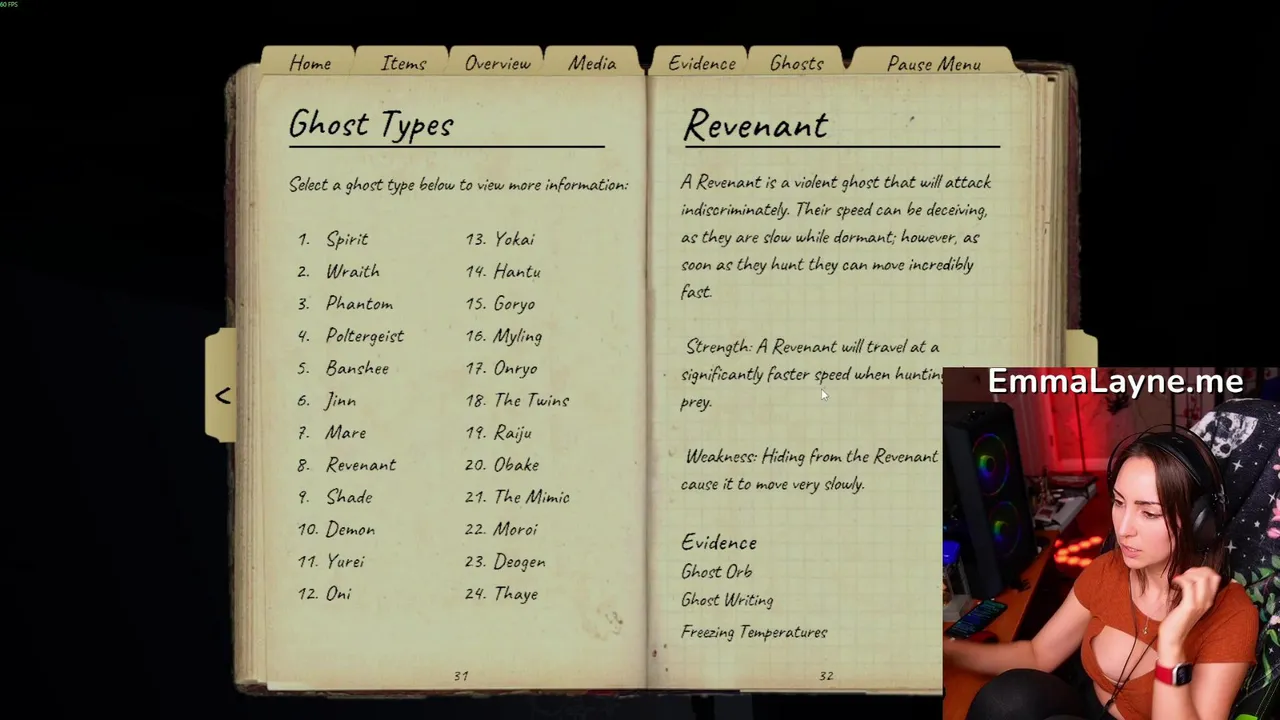 60 FPS
Home Items Overview Media Evidence Ghosts Pause Menu
Ghost Types
Select a ghost type below to view more information:
1. Spirit
2. Wraith
3. Phantom
4. Poltergeist
5. Banshee
6. Jinn
7. Mare
8. Revenant
9. Shade
10. Demon
11. Yurei
12. Oni
13. Yokai
14. Hantu
15. Goryo
16. Myling
17. Onryo
18. The Twins
19. Raiju
20. Obake
21. The Mimic
22. Moroi
23. Deogen
24. Thaye
31
<
Revenant
A Revenant is a violent ghost that will attack
indiscriminately. Their speed can be deceiving,
as they are slow while dormant; however, as
soon as they hunt they can move incredibly
fast.
Strength: A Revenant will travel at a
significantly faster speed when hunting
prey.
Weakness: Hiding from the Revenant
cause it to move very slowly.
Evidence
Ghost Orb
Ghost Writing
Freezing Temperatures
32
EmmaLayne.me